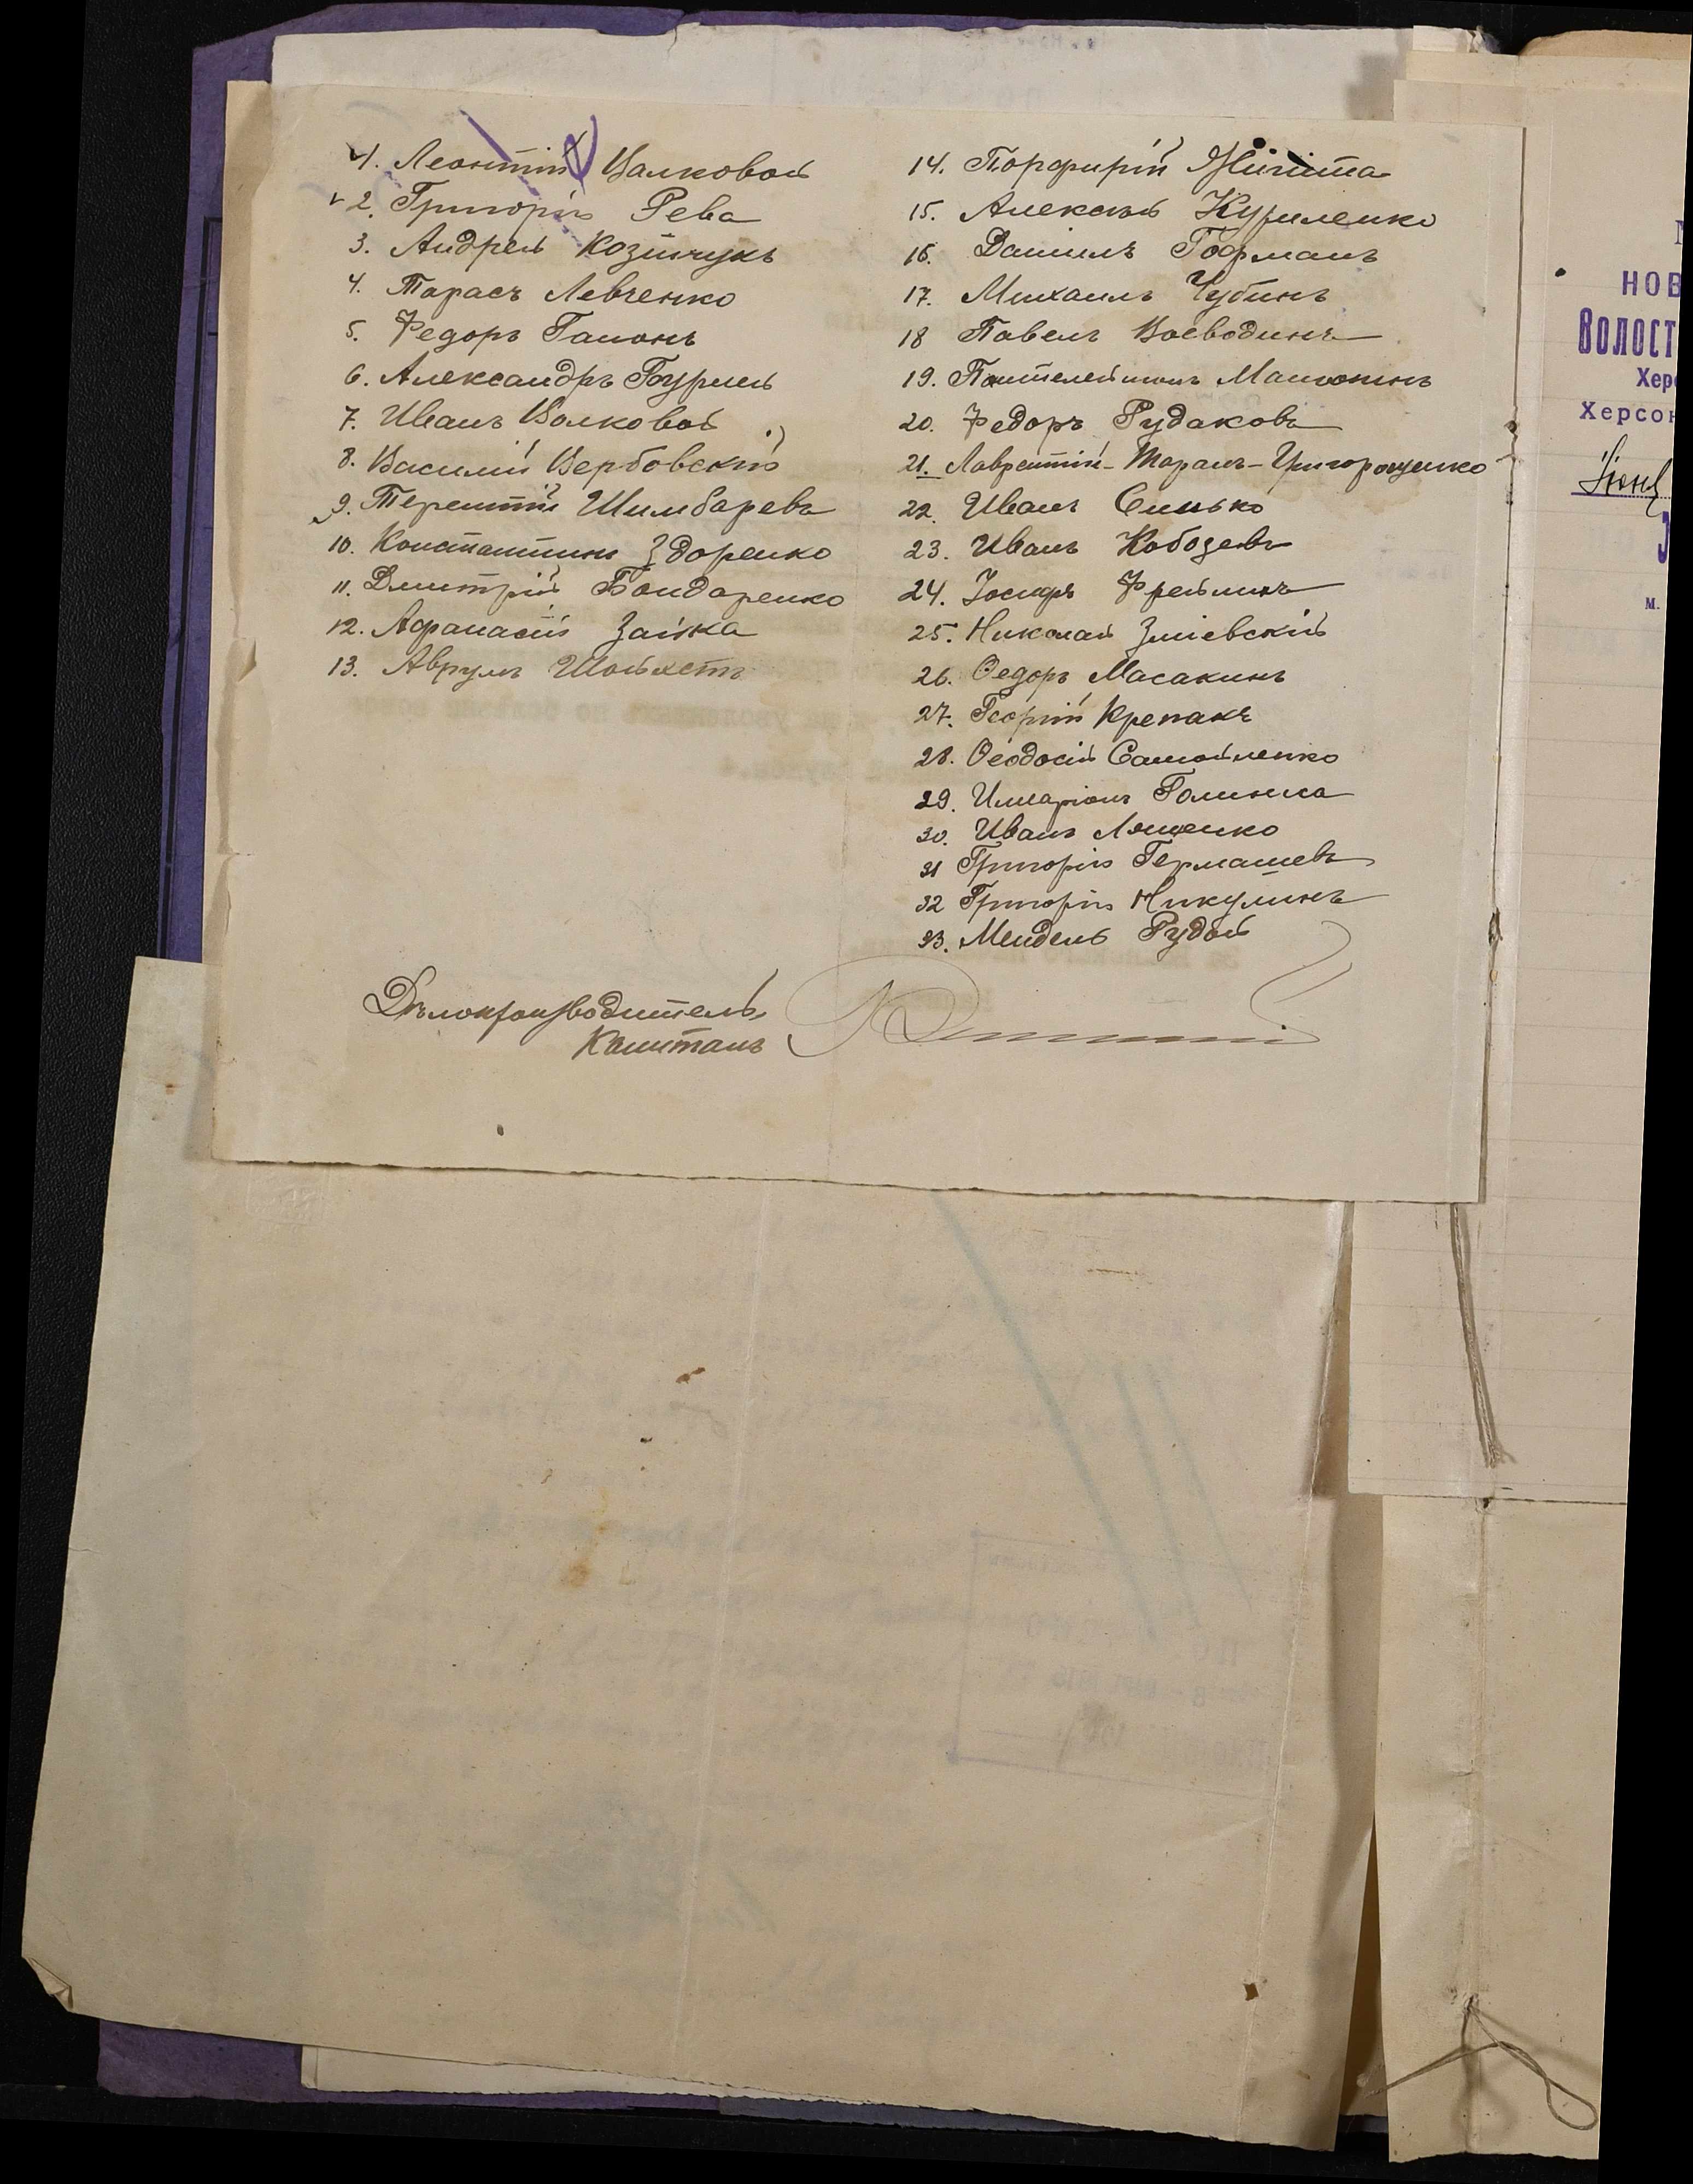 1. Леонтій Валковой
2. Григорій Рева
3. Андрей Козинчукъ
4. Тарасъ Левченко
5. Федоръ Гапонъ
6. Александръ Гоуриль
7. Иванъ Волковой
8. Василій Вербовскій
9. Терентій Шимбаревъ
10. Константинъ Здоренко
11. Дмитрій Бондаренко
12. Афанасій Заика
13. Аврумъ Шойхетъ
14. Порфирій
15. Алексѣй Куриленко
16. Даніилъ Гофманъ
17. Михаилъ Чубинъ
18 Павелъ Воеводинъ
19. Пантелеймонъ
20. Федоръ Рудаковъ
21. Лаврентій-Таранъ-Григорощенко
22. Иванъ Синько
23. Иванъ Кобозевъ
24. Іосифъ Фрейлинъ
25. Николай Зміевскій
26. Ѳедоръ Масакинъ
27. Георгій Крепакъ
28. Ѳеодосій Самойленко
29. Иларіонъ Голинка
30. Иванъ Лященко
31 Григорій Гермашевъ
32 Григорій Никулинъ
33. Мендель Рудой
Дѣлопроизводитель,
Капитанъ
НОВ
ВОЛОСТ
Хер
Херсон
Іюня
м.